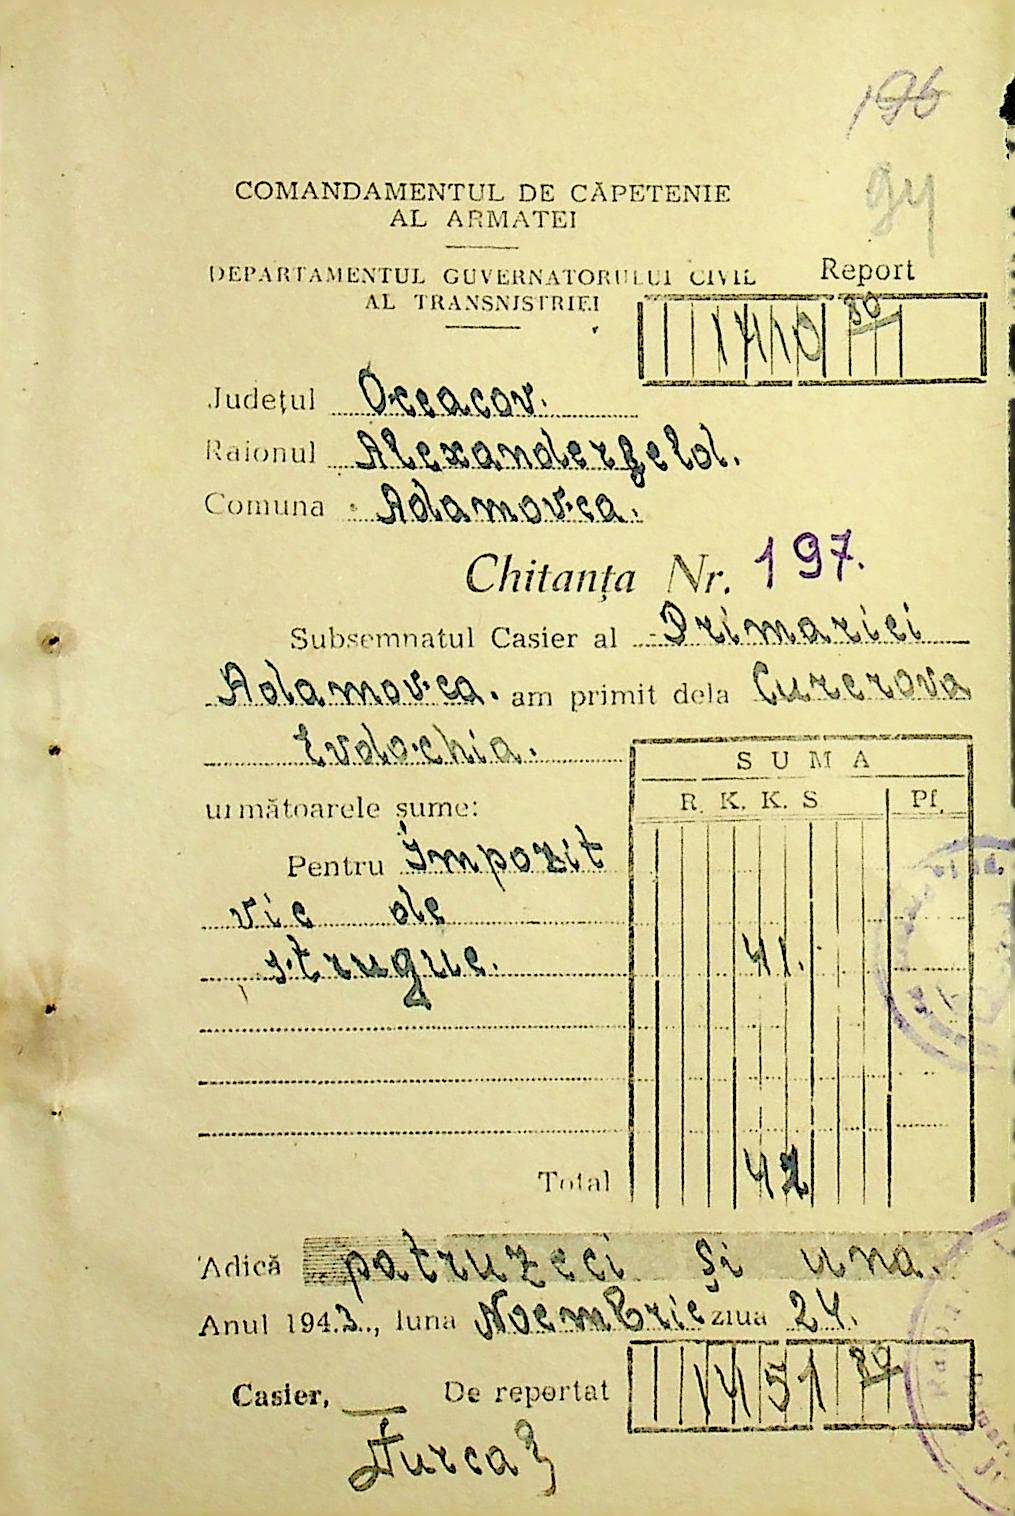 196
94
COMANDAMENTUL DE CĂPETENIE
AL ARMATEI
DEPARTAMENTUL GUVERNATORULUI CIVIL
AL TRANSNISTRIEI
Report
1410 80
Județul Oceacov.
Raionul Alexanderfeld.
Comuna Adamovca.
Chitanța Nr. 197.
Subsemnatul Casier al Primariei
Adamovca. am primit dela Curcrova
Evdochia.
SUMA
următoarele sume:
R. K. K. S Pf.
Pentru Impozit
vie de
strugue. 41.
Total 41
Adică patruzeci și una.
Anul 1943., luna Noembrie ziua 24.
Casier, De reportat 1451 80
Țurca